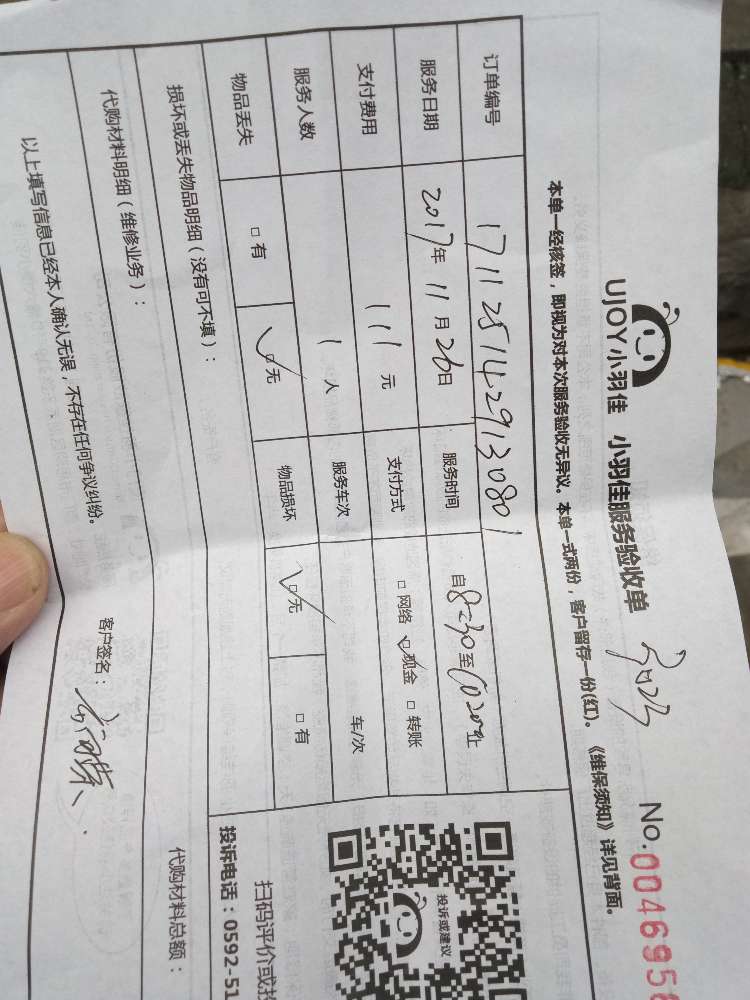 UJOY小羽佳 小羽佳服务验收单
No.004695
本单一经核签，即视为对本次服务验收无异议。本单一式两份，客户留存一份(红)。《维保须知》详见背面。
订单编号 1711251429130801
服务日期 2017年11月26日 服务时间 自8:30至 止
支付费用 111元 支付方式 □网络 ☑现金 □转账
服务人数 1人 服务车次 车/次
物品丢失 □有 ☑无 物品损坏 ☑无 □有
损坏或丢失物品明细（没有可不填）：
代购材料明细（维修业务）：
代购材料总额：
以上填写信息已经本人确认无误，不存在任何争议纠纷。
客户签名：
投诉或建议
扫码评价或
投诉电话：0592-51